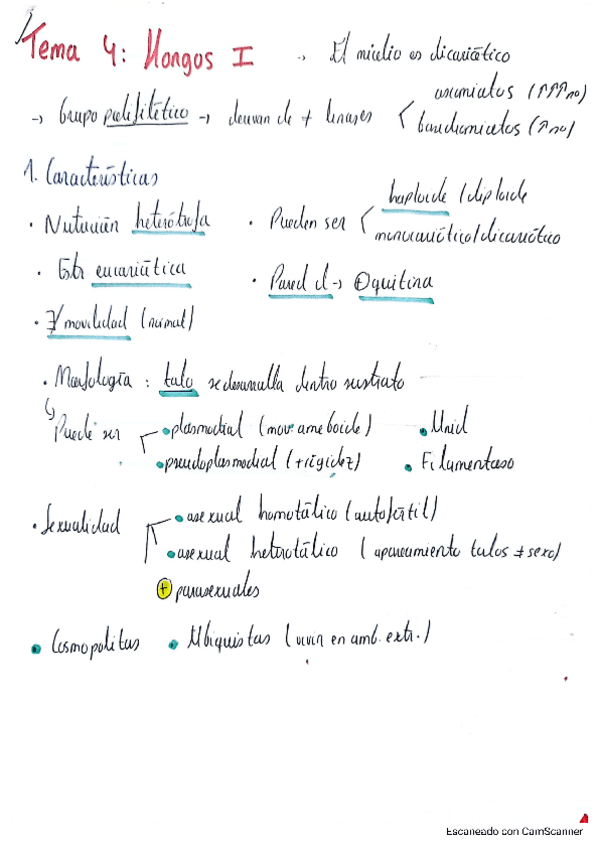 Tema 4: Hongos I
→ El micelio es dicariótico
→ Grupo polifilético → derivan de + linajes < ascomicetos (↑↑↑ no)
basidiomicetos (↑ no)
1. Características
• Nutrición heterótrofa
• Pueden ser < haploide / diploide
monocariótico / dicariótico
• Estr eucariótica
• Pared cl → ⊕ quitina
• ∄ movilidad (normal)
• Morfología : talo se desarrolla dentro sustrato
Puede ser
• plasmodial (mov. ameboide)
• Unid
• pseudoplasmodial (+ rigidez)
• Filamentoso
• Sexualidad
• asexual homotálico (autofértil)
• asexual heterotálico (apareamiento talos ≠ sexo)
⊕ parasexuales
• Cosmopolitas
• Ubiquistas (viven en amb. extr.)
Escaneado con CamScanner